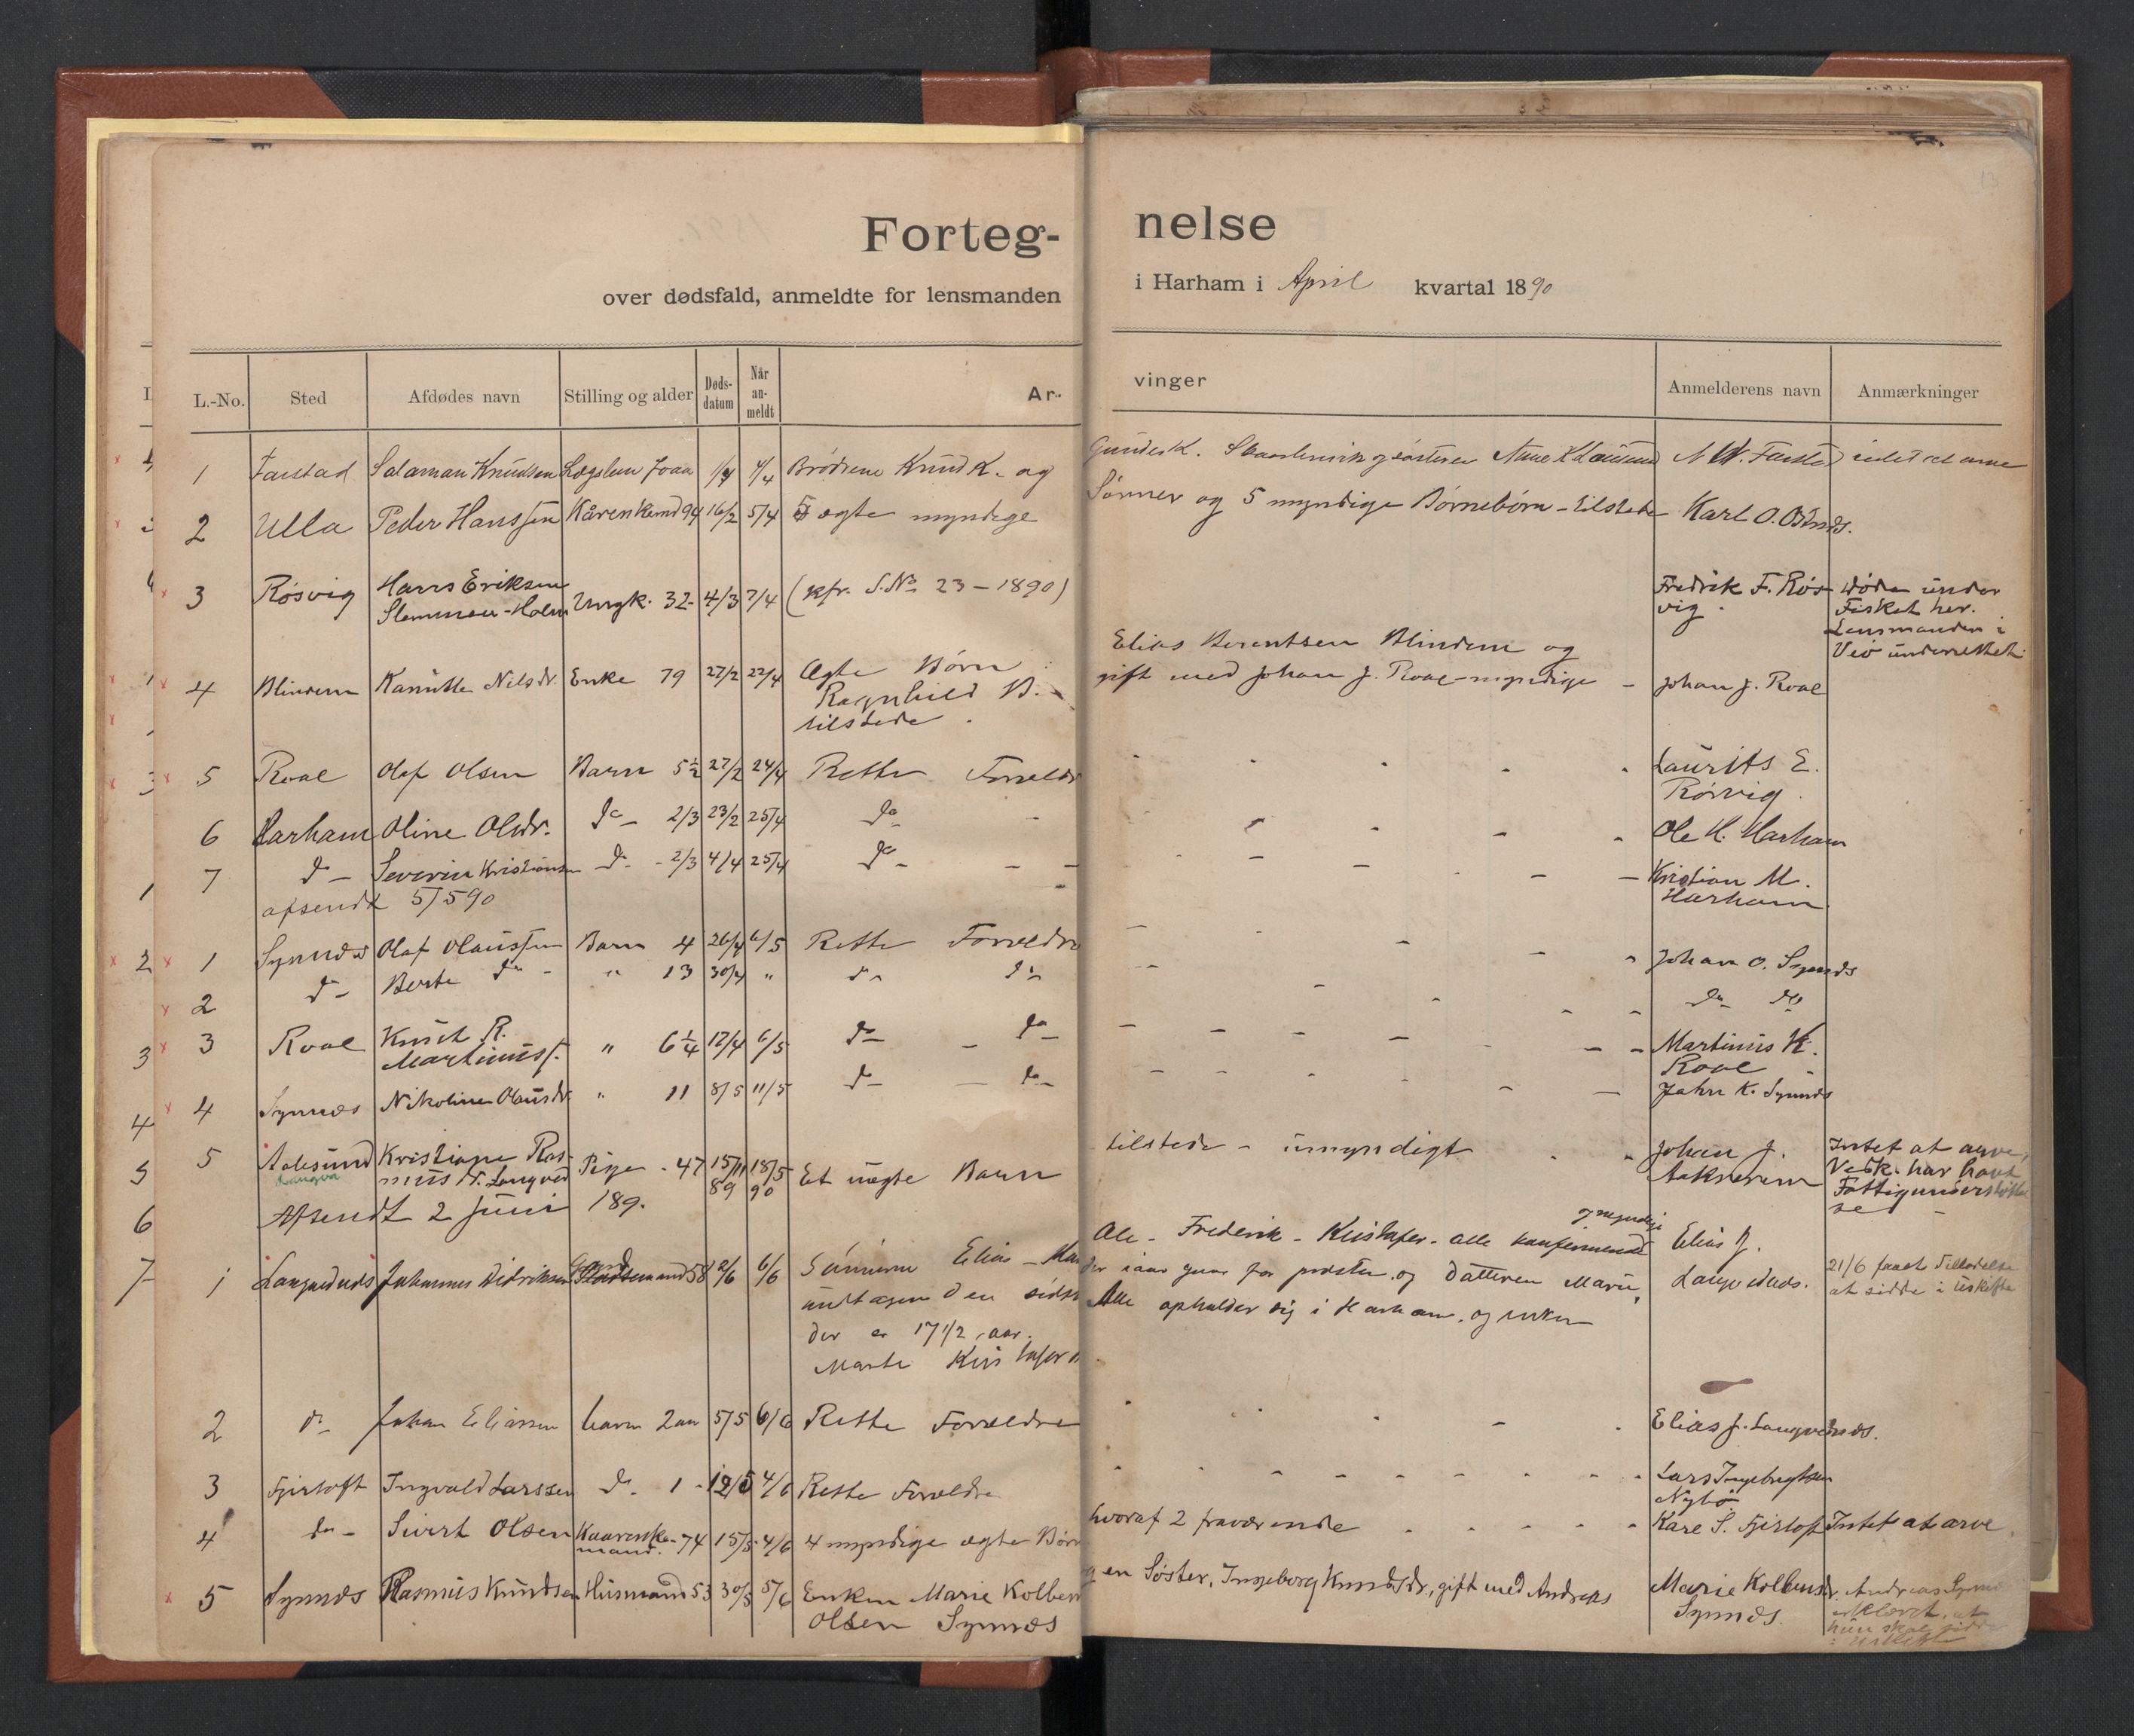 Forteg-
nelse
over dødsfald, anmeldte for lensmanden
i Harham i April kvartal 1890
L.-No. Sted Afdødes navn Stilling og alder Døds-datum Når an-meldt Ar-
vinger Anmelderens navn Anmærkninger
1 Farstad Salaman Knudsen 4/4 Brødrene Knud K. og
Anne K
2 Ulla Peder Hanssen Kårenkemd 94 16/2 5/4 5 ægte myndige
Sønner og 5 myndige Børnebørn - tilstede Karl O.
3 Røsvig Hans Eriksen Ungk. 32 4/3 7/4 (kfr. S.No 23 - 1890)
Fredrik F. Røsvig. døde under
Fisket her.
Lensmanden i
underrettet
Elias Berentsen Blindem og
4 Blindem Nilsdr. Enke 79 27/2 22/4 Ægte Børn
gift med Johan J. Roal - myndige - Johan J. Roal
Ragnhild B.
tilstede.
5 Roal Olaf Olsen Barn 5½ 27/2 24/4 Rette Forældre
Laurits E.
Rørvig.
6 Harham Oline Olsdr. do - 2/3 23/2 25/4 do -
Ole H. Harham
7 do - Severin Kristiansen do - 2/3 4/4 25/4 do - -
Kristian M.
Harham.
afsendt 5/5 90
1 Synnæs Olaf Olaussen Barn 4 26/4 6/5 Rette Forældre
Johan O. Synnæs
2 do - Berte do - " 13 30/4 " do do
do do
3 Roal Knut R.
Martinuss. " 6¼ 12/4 6/5 do - do
Martinus K.
Roal
4 Synnæs Nikoline Olausdr. " 11 8/5 11/5 do - do
John K. Synnæs
5 Aalesund Kristiane Ras-
mus Longva Pige - 47 15/11 89 18/5 90 Et uægte Barn
Longva
tilstede - umyndigt Johan J.
Intet at arve,
har havt
Fattigunderstøttel
se
Afsendt 2 Juni 189.
1 Johannes Didriksen 58 2/6 6/6 Sønnerne Elias -
Ole - Frederik - Kristofer - alle konfirmerede myndige
Elias J.
undtagen den sidste
der iaar gaar for præsten og datteren Marie,
21/6 faaet Tilladelse
at sidde i uskifte
der er 17 1/2 aar.
Alle opholder sig i Harham, og enken
Marte
2 do Johan Eliassen barn 2 aar 5/5 6/6 Rette Forældre
Elias J.
3 Fjirtoft Ingvald Larssen do. 1 - 12/5 4/6 Rette Forældre
Lars Ingebrigtsen
Nybø
4 do - Sivert Olsen Kaarenke-
mand. 74 15/5 4/6 4 myndige ægte Børn
hvoraf 2 fraværende Kare S. Fjirtoft Intet at arve.
5 Synnæs Rasmus Knudsen Husmand 53 30/5 5/6 Enken Marie
og en Søster, Ingeborg Knudsdr., gift med Andreas
Marie
Synnæs.
Olsen Synnæs
Andreas
erklæret, at
hun skal sidde
i uskifte